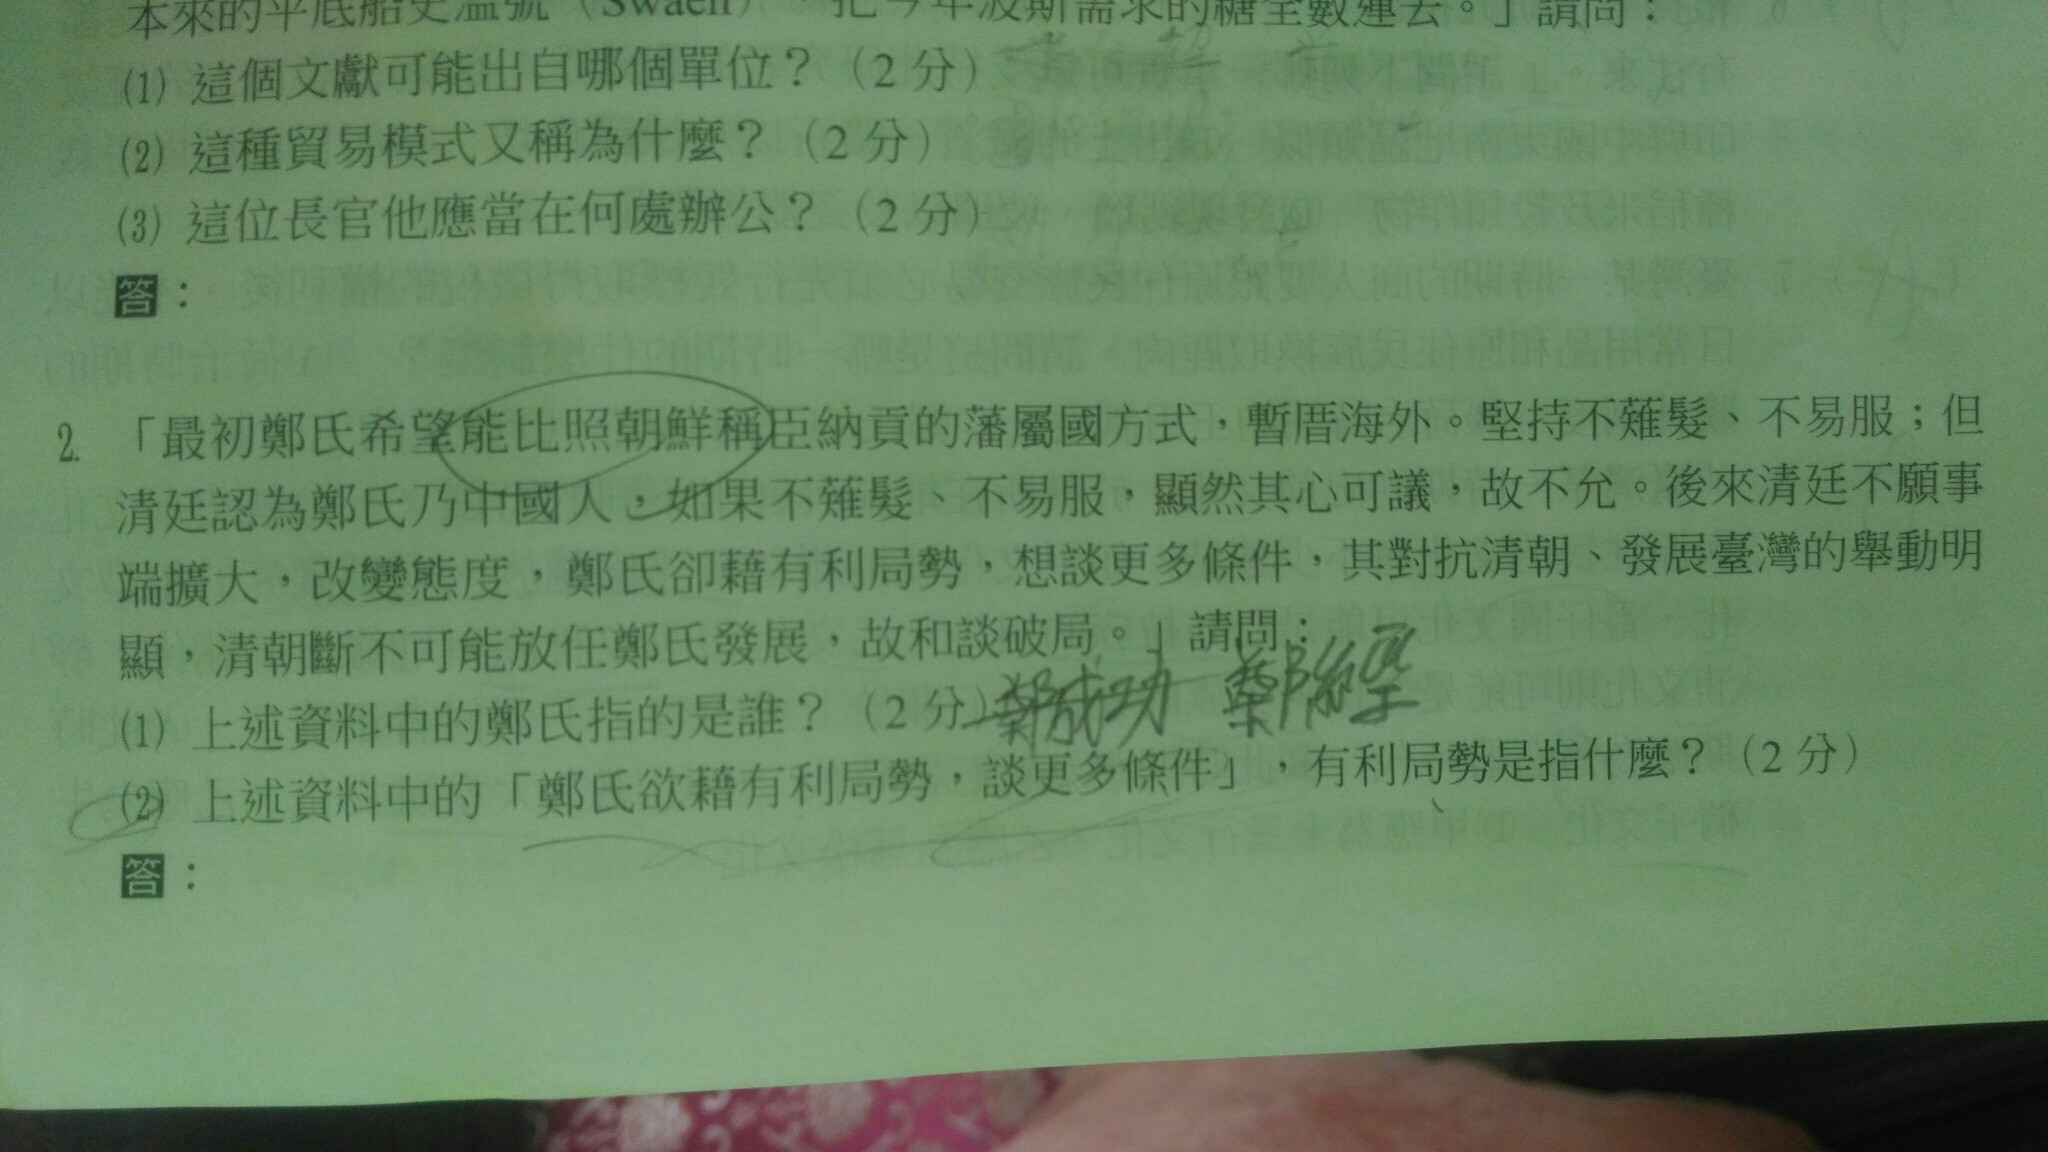 本來的平底船史溫號（Swaen），把今年波斯需求的糖全數運去。」請問：
(1) 這個文獻可能出自哪個單位？（2 分）
(2) 這種貿易模式又稱為什麼？（2 分）
(3) 這位長官他應當在何處辦公？（2 分）
答：
2. 「最初鄭氏希望能比照朝鮮稱臣納貢的藩屬國方式，暫厝海外。堅持不薙髮、不易服；但
清廷認為鄭氏乃中國人，如果不薙髮、不易服，顯然其心可議，故不允。後來清廷不願事
端擴大，改變態度，鄭氏卻藉有利局勢，想談更多條件，其對抗清朝、發展臺灣的舉動明
顯，清朝斷不可能放任鄭氏發展，故和談破局。」請問：
(1) 上述資料中的鄭氏指的是誰？（2 分） 鄭成功 鄭經
(2) 上述資料中的「鄭氏欲藉有利局勢，談更多條件」，有利局勢是指什麼？（2 分）
答：